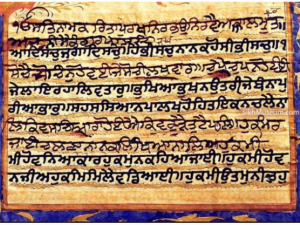 ੴਸਤਿਨਾਮੁਕਰਤਾਪੁਰਖੁਨਿਰਭਉਨਿਰਵੈਰੁਅਕਾਲਮੂਰਤਿ
ਅਜੂਨੀਸੈਭੰਗੁਰਪ੍ਰਸਾਦਿ॥
ਆਦਿਸਚੁਜੁਗਾਦਿਸਚੁਹੈਭੀਸਚੁਨਾਨਕਹੋਸੀਭੀਸਚੁ॥੧॥
ਸੋਚੈਸੋਚਿਨਹੋਵਈਜੇਸੋਚੀਲਖਵਾਰ॥ਚੁਪੈਚੁਪਨਹੋਵਈ
ਜੇਲਾਇਰਹਾਲਿਵਤਾਰ॥ਭੁਖਿਆਭੁਖਨਉਤਰੀਜੇਬੰਨਾਪੁ
ਰੀਆਭਾਰ॥ਸਹਸਸਿਆਣਪਾਲਖਹੋਹਿਤਇਕਨਚਲੈਨਾ
ਲਿ॥ਕਿਵਸਚਿਆਰਾਹੋਈਐਕਿਵਕੂੜੈਤੁਟੈਪਾਲਿ॥ਹੁਕਮਿਰ
ਜਾਈਚਲਣਾਨਾਨਕਲਿਖਿਆਨਾਲਿ॥੧॥ਹੁਕਮੀ
ਹੋਵਨਿਆਕਾਰਹੁਕਮੁਨਕਹਿਆਜਾਈ॥ਹੁਕਮੀਹੋਵ
ਨਿਜੀਅਹੁਕਮਿਮਿਲੈਵਡਿਆਈ॥ਹੁਕਮੀਉਤਮੁਨੀਚੁਹੁ